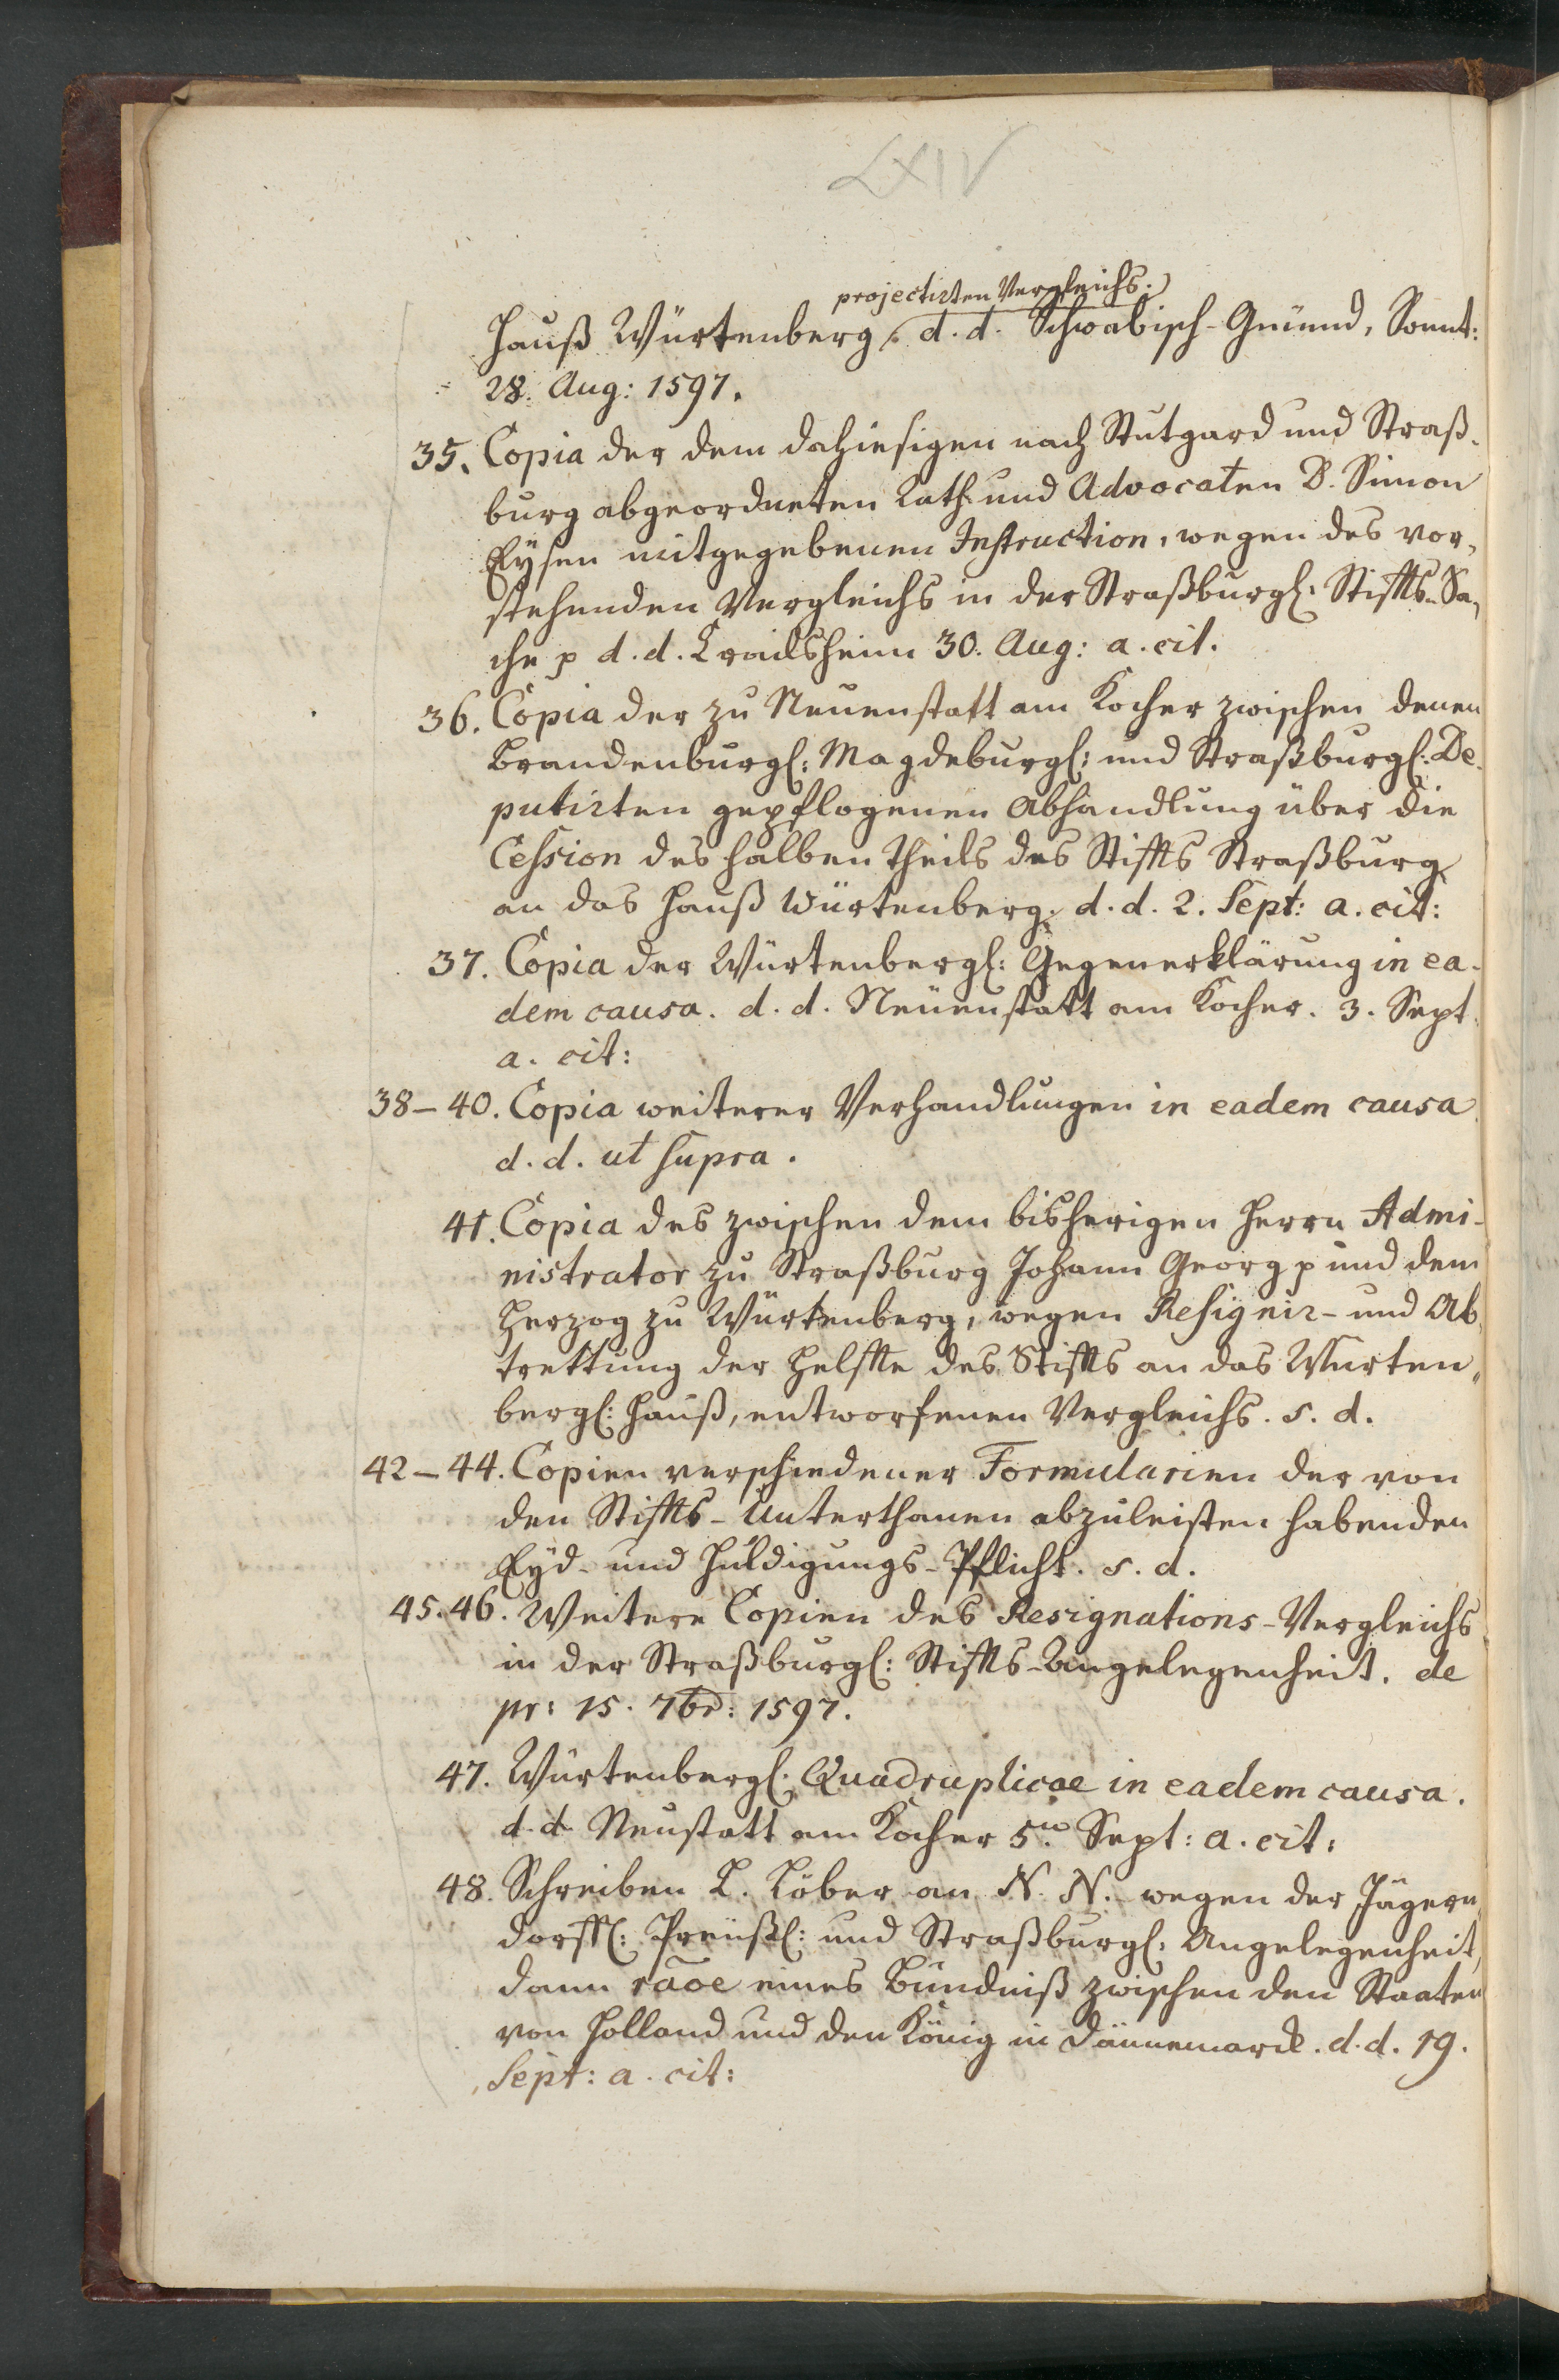 LXIV
projectirten Vergleichs.
Hauß Würtenberg, d. d. Schwäbisch-Gmünd, Sonnt:
28. Aug: 1597.
35. Copia der dem dahiesigen nach Stutgard und Straß-
burg abgeordneten Rath und Advocaten D. Simon
Eysen mitgegebenen Instruction, wegen des vor-
stehenden Vergleichs in der Straßburgl: Stiffts-Sa-
che p d. d. Crailsheim 30. Aug: a. cit.
36. Copia der zu Neuenstatt am Kocher zwischen denen
Brandenburgl: Magdeburgl: und Straßburgl: De-
putirten gepflogenen Abhandlung über die
Cession des halben Theils des Stiffts Straßburg
an das Hauß Würtenberg. d. d. 2. Sept: a. cit:
37. Copia der Würtenbergl: Gegenerklärung in ea-
dem causa. d. d. Neuenstatt am Kocher. 3. Sept.
a. cit:
38–40. Copia weiterer Verhandlungen in eadem causa
d. d. ut supra.
41. Copia des zwischen dem bisherigen Herrn Admi-
nistrator zu Straßburg Johann Georg p und dem
Herzog zu Würtenberg, wegen Resignir- und Ab-
trettung der Helffte des Stiffts an das Würten-
bergl: Hauß, entworfenen Vergleichs. s. d.
42–44. Copien verschiedener Formularien der von
den Stiffts-Unterthanen abzuleisten habenden
Eyd- und Huldigungs-Pflicht. s. d.
45.46. Weitere Copien des Resignations-Vergleichs
in der Straßburgl: Stiffts-Angelegenheit. de
pr: 15. 7br: 1597.
47. Würtenbergl: Quadruplicae in eadem causa.
d. d. Neustatt am Kocher 5.ten Sept: a. cit:
48. Schreiben L. Löber an N. N. wegen der Jägern-
dorffl: Preußl: und Straßburgl: Angelegenheit,
dann raõe eines Bündniß zwischen den Staaten
von Holland und den König in Dännemarck. d. d. 19.
Sept: a. cit: